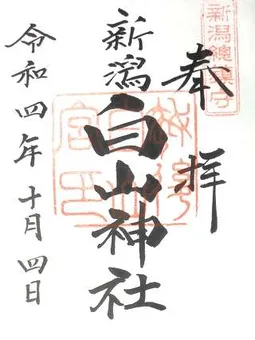 奉拝
新潟總鎮守
新潟白山神社
令和四年十月四日